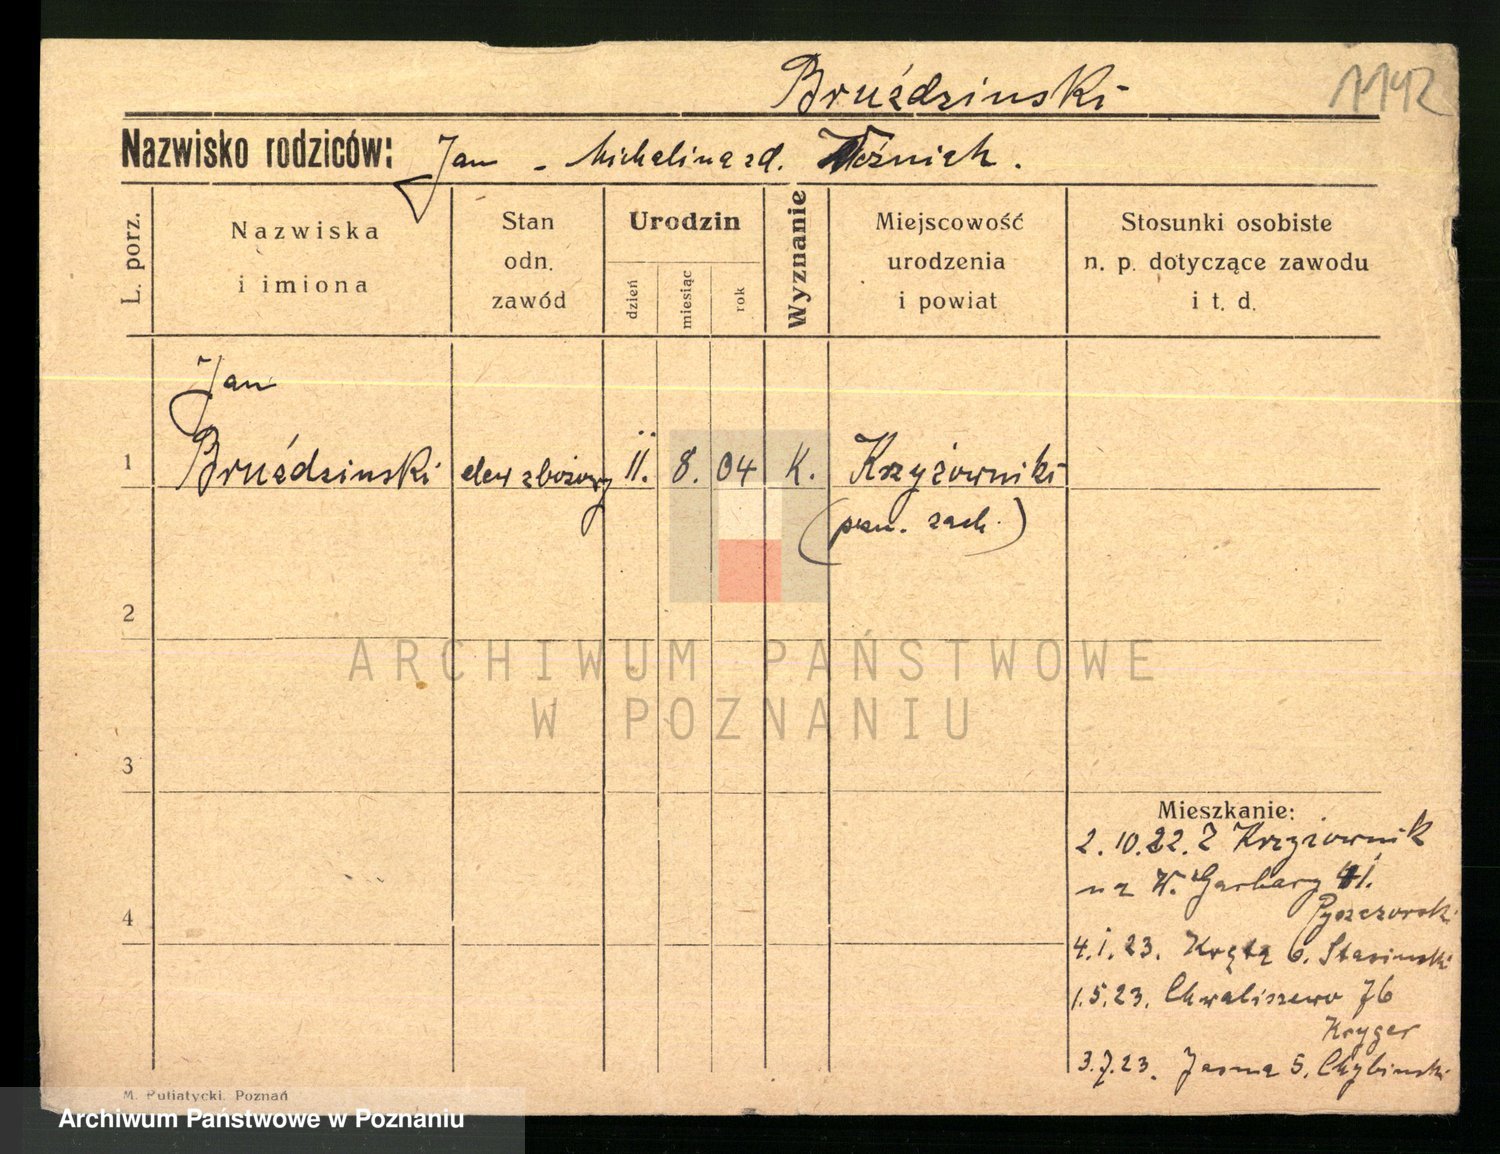 Bruździnski
1142
Nazwisko rodziców: Jan - Michalina zd. Woźniak.
L. porz.
Nazwiska
i imiona
Stan
odn.
zawód
Urodzin
dzień
miesiąc
rok
Wyznanie
Miejscowość
urodzenia
i powiat
Stosunki osobiste
n. p. dotyczące zawodu
i t. d.
Jan
1 Bruździnski elew zbożowy 11. 8. 04 K. Krzyżowniki
(pzn. zach.)
2
3
4
Mieszkanie:
2.10.22. Z Krzyżownik
na W. Garbary 41.
Pyszczorski
4.1.23. Krętą 6. Stasinski
1.5.23. Chwaliszewo 76
Kryger
3.7.23. Jasna 5. Chybinski
M. Putiatycki, Poznań
ARCHIWUM PAŃSTWOWE
W POZNANIU
Archiwum Państwowe w Poznaniu